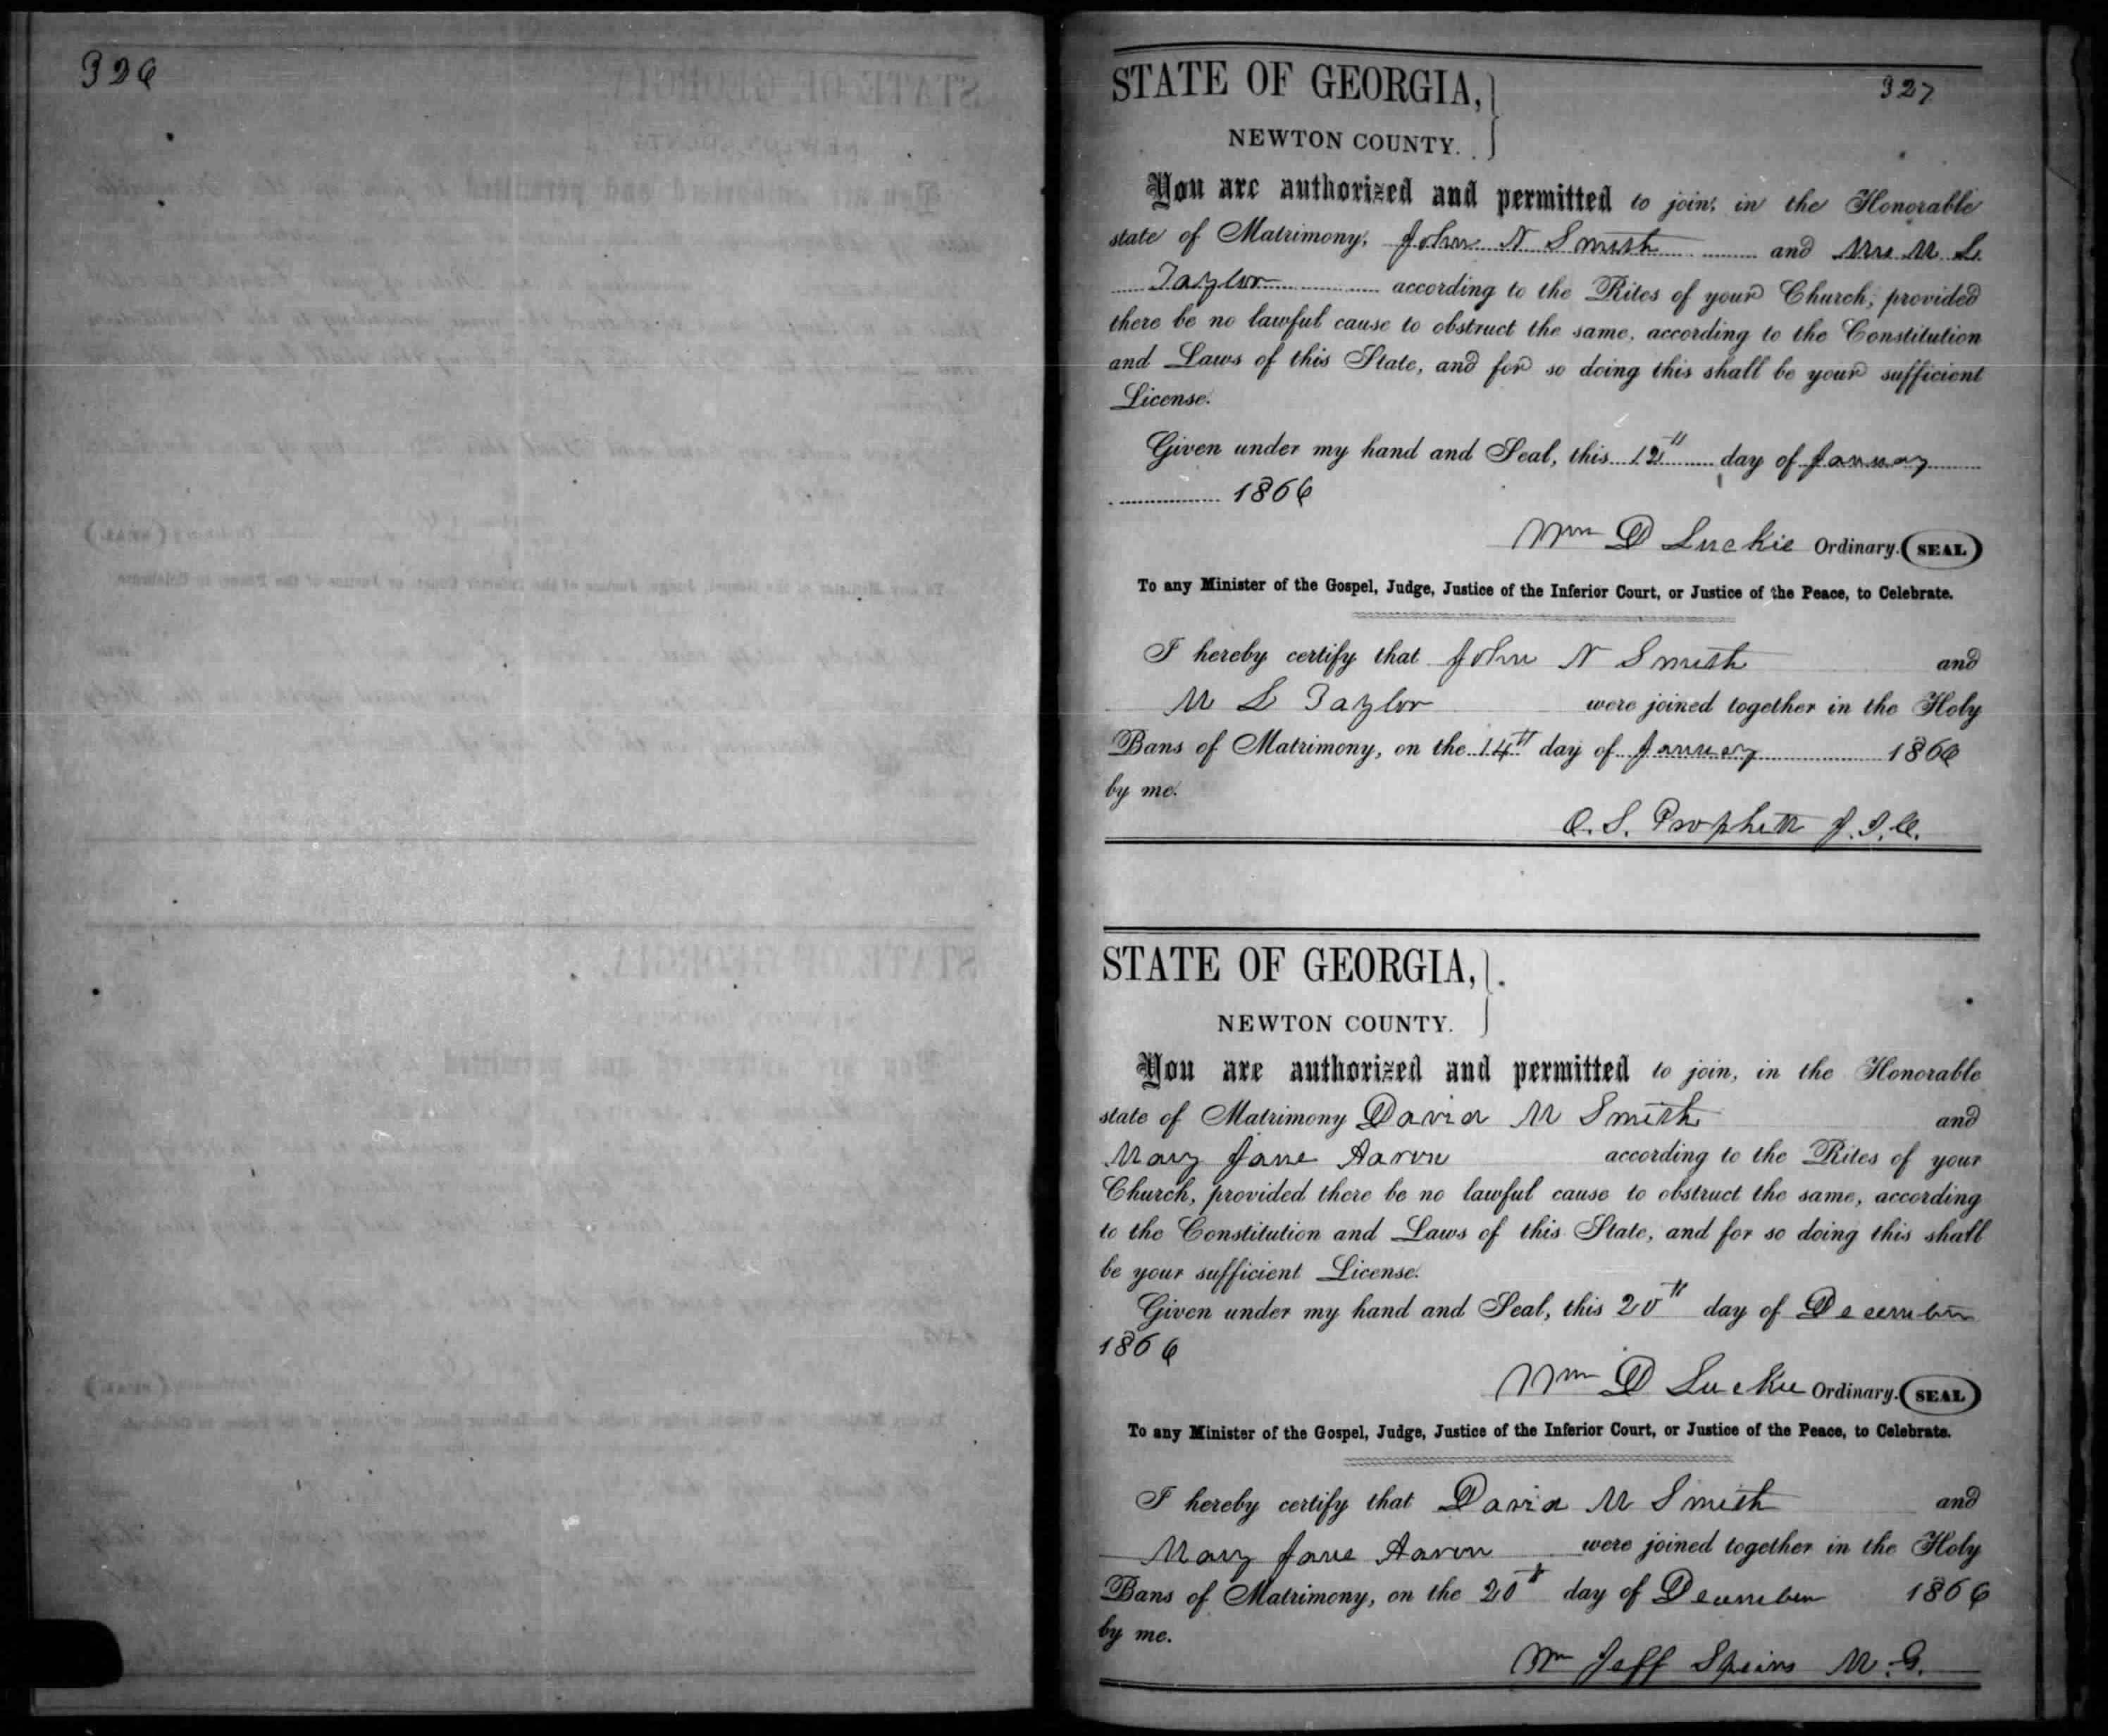 326
327
STATE OF GEORGIA,
NEWTON COUNTY.
You are authorized and permitted to join, in the Honorable
state of Matrimony, John N Smith and Mrs M L
Taylor according to the Rites of your Church, provided
there be no lawful cause to obstruct the same, according to the Constitution
and Laws of this State, and for so doing this shall be your sufficient
License.
Given under my hand and Seal, this 12th day of January
1866
Wm D Luckie Ordinary. (SEAL)
To any Minister of the Gospel, Judge, Justice of the Inferior Court, or Justice of the Peace, to Celebrate.
I hereby certify that John N Smith and
M L Taylor were joined together in the Holy
Bans of Matrimony, on the 14th day of January 1866
by me.
O. S. Prophett J. I. C.
STATE OF GEORGIA,
NEWTON COUNTY.
You are authorized and permitted to join, in the Honorable
state of Matrimony David M Smith and
Mary Jane Aaron according to the Rites of your
Church, provided there be no lawful cause to obstruct the same, according
to the Constitution and Laws of this State, and for so doing this shall
be your sufficient License.
Given under my hand and Seal, this 20th day of December
1866
Wm D Luckie Ordinary. (SEAL)
To any Minister of the Gospel, Judge, Justice of the Inferior Court, or Justice of the Peace, to Celebrate.
I hereby certify that David M Smith and
Mary Jane Aaron were joined together in the Holy
Bans of Matrimony, on the 20th day of December 1866
by me.
Wm Jeff Speirs M. G.